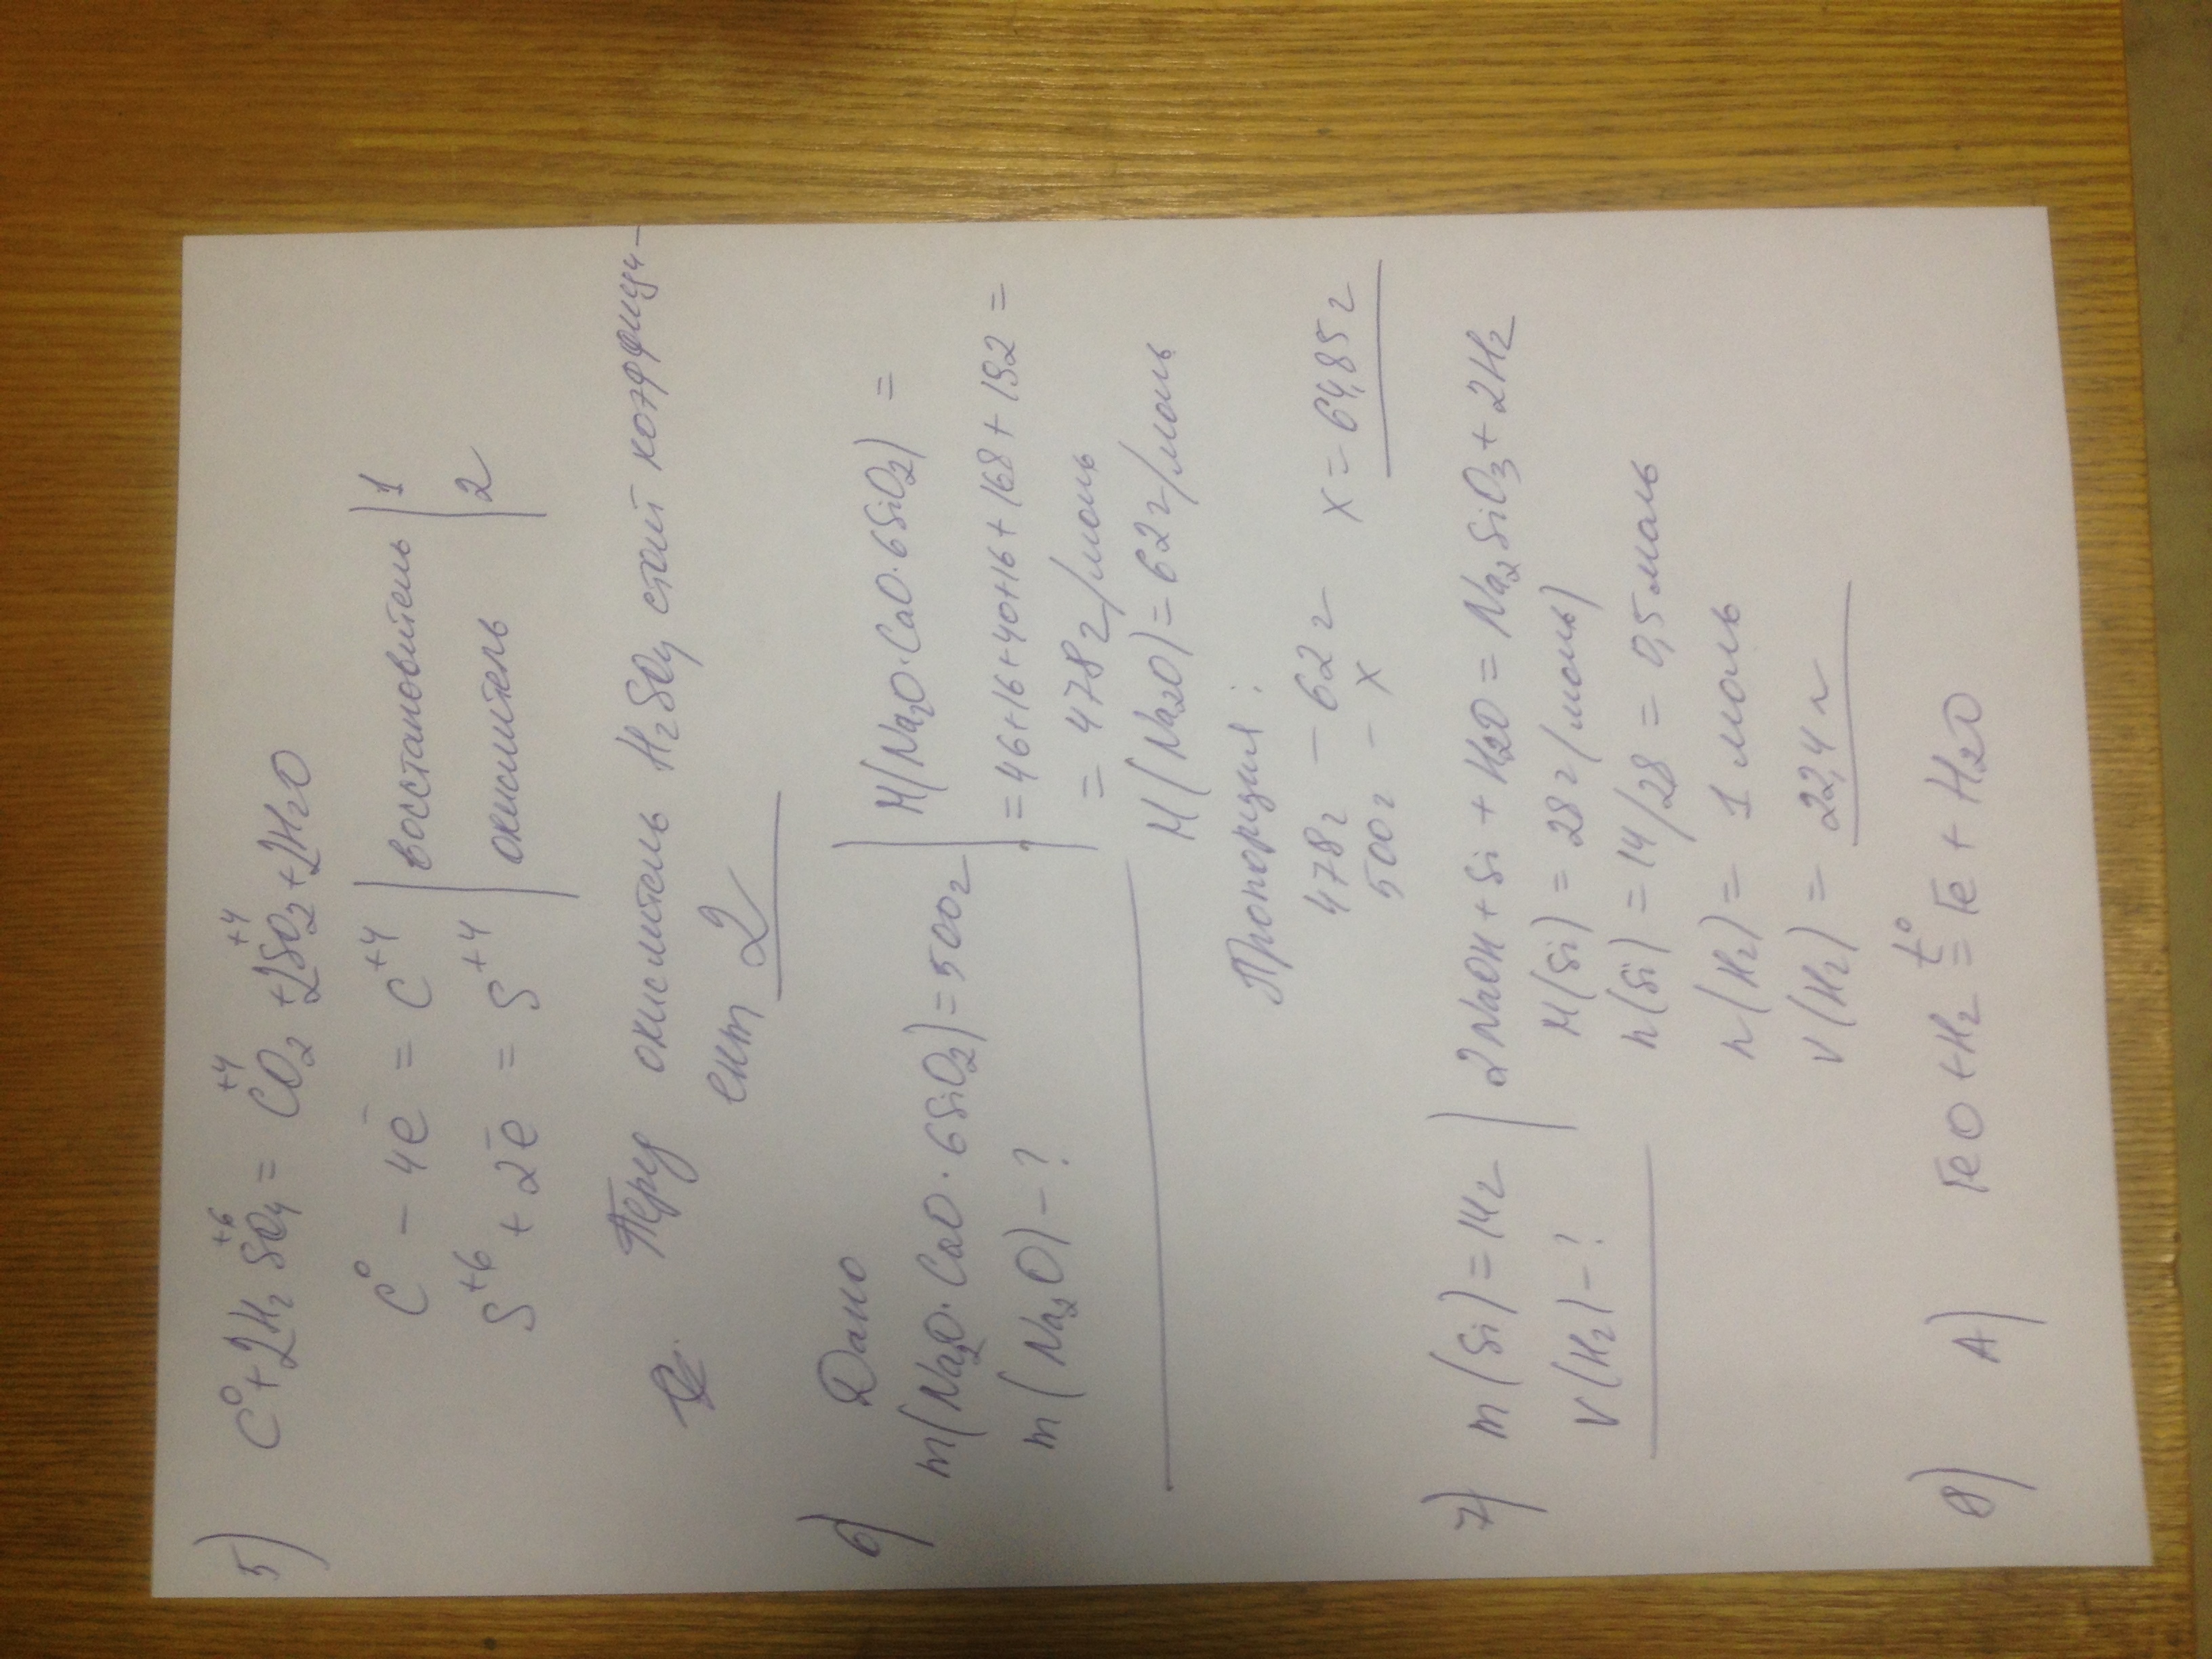 5) C⁰ + 2H₂S⁺⁶O₄ = C⁺⁴O₂ + 2S⁺⁴O₂ + 2H₂O
C⁰ - 4ē = C⁺⁴ | восстановитель | 1
S⁺⁶ + 2ē = S⁺⁴ | окислитель | 2
Перед окислитель H₂SO₄ стоит коэффици-
ент 2
6) Дано
m(Na₂O·CaO·6SiO₂) = 500г
m(Na₂O) - ?
M(Na₂O·CaO·6SiO₂) =
= 46+16+40+16+168+192 =
= 478 г/моль
M(Na₂O) = 62 г/моль
Пропорция:
478г - 62г
500г - x x = 64,85г
7) m(Si) = 14г
V(H₂) - ?
2NaOH + Si + H₂O = Na₂SiO₃ + 2H₂
M(Si) = 28г/моль)
n(Si) = 14/28 = 0,5моль
n(H₂) = 1 моль
V(H₂) = 22,4 л
8) А) FeO + H₂ =t⁰ Fe + H₂O